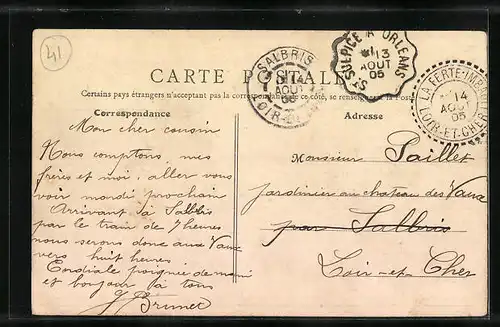 41
CARTE POSTALE
Certains pays étrangers n'acceptant pas la correspondance de ce côté, se renseigner à la Poste
Correspondance
Adresse
SALBRIS
AOUT
05
LOIR-ET-CHER
St SULPICE A ORLEANS
13
AOUT
05
LA FERTE-IMBAULT
14
AOUT
05
LOIR-ET-CHER
Mon cher cousin
Nous comptons, mes
frères et moi, aller vous
voir mardi prochain
Arrivant à Salbris
par le train de 7 heures
nous serons donc aux Vaux
vers huit heures
Cordiale poignée de main
et bonjour à tous
Brunet
Monsieur Paillet
jardinier au chateau des Vaux
par Salbris
Loir-et-Cher